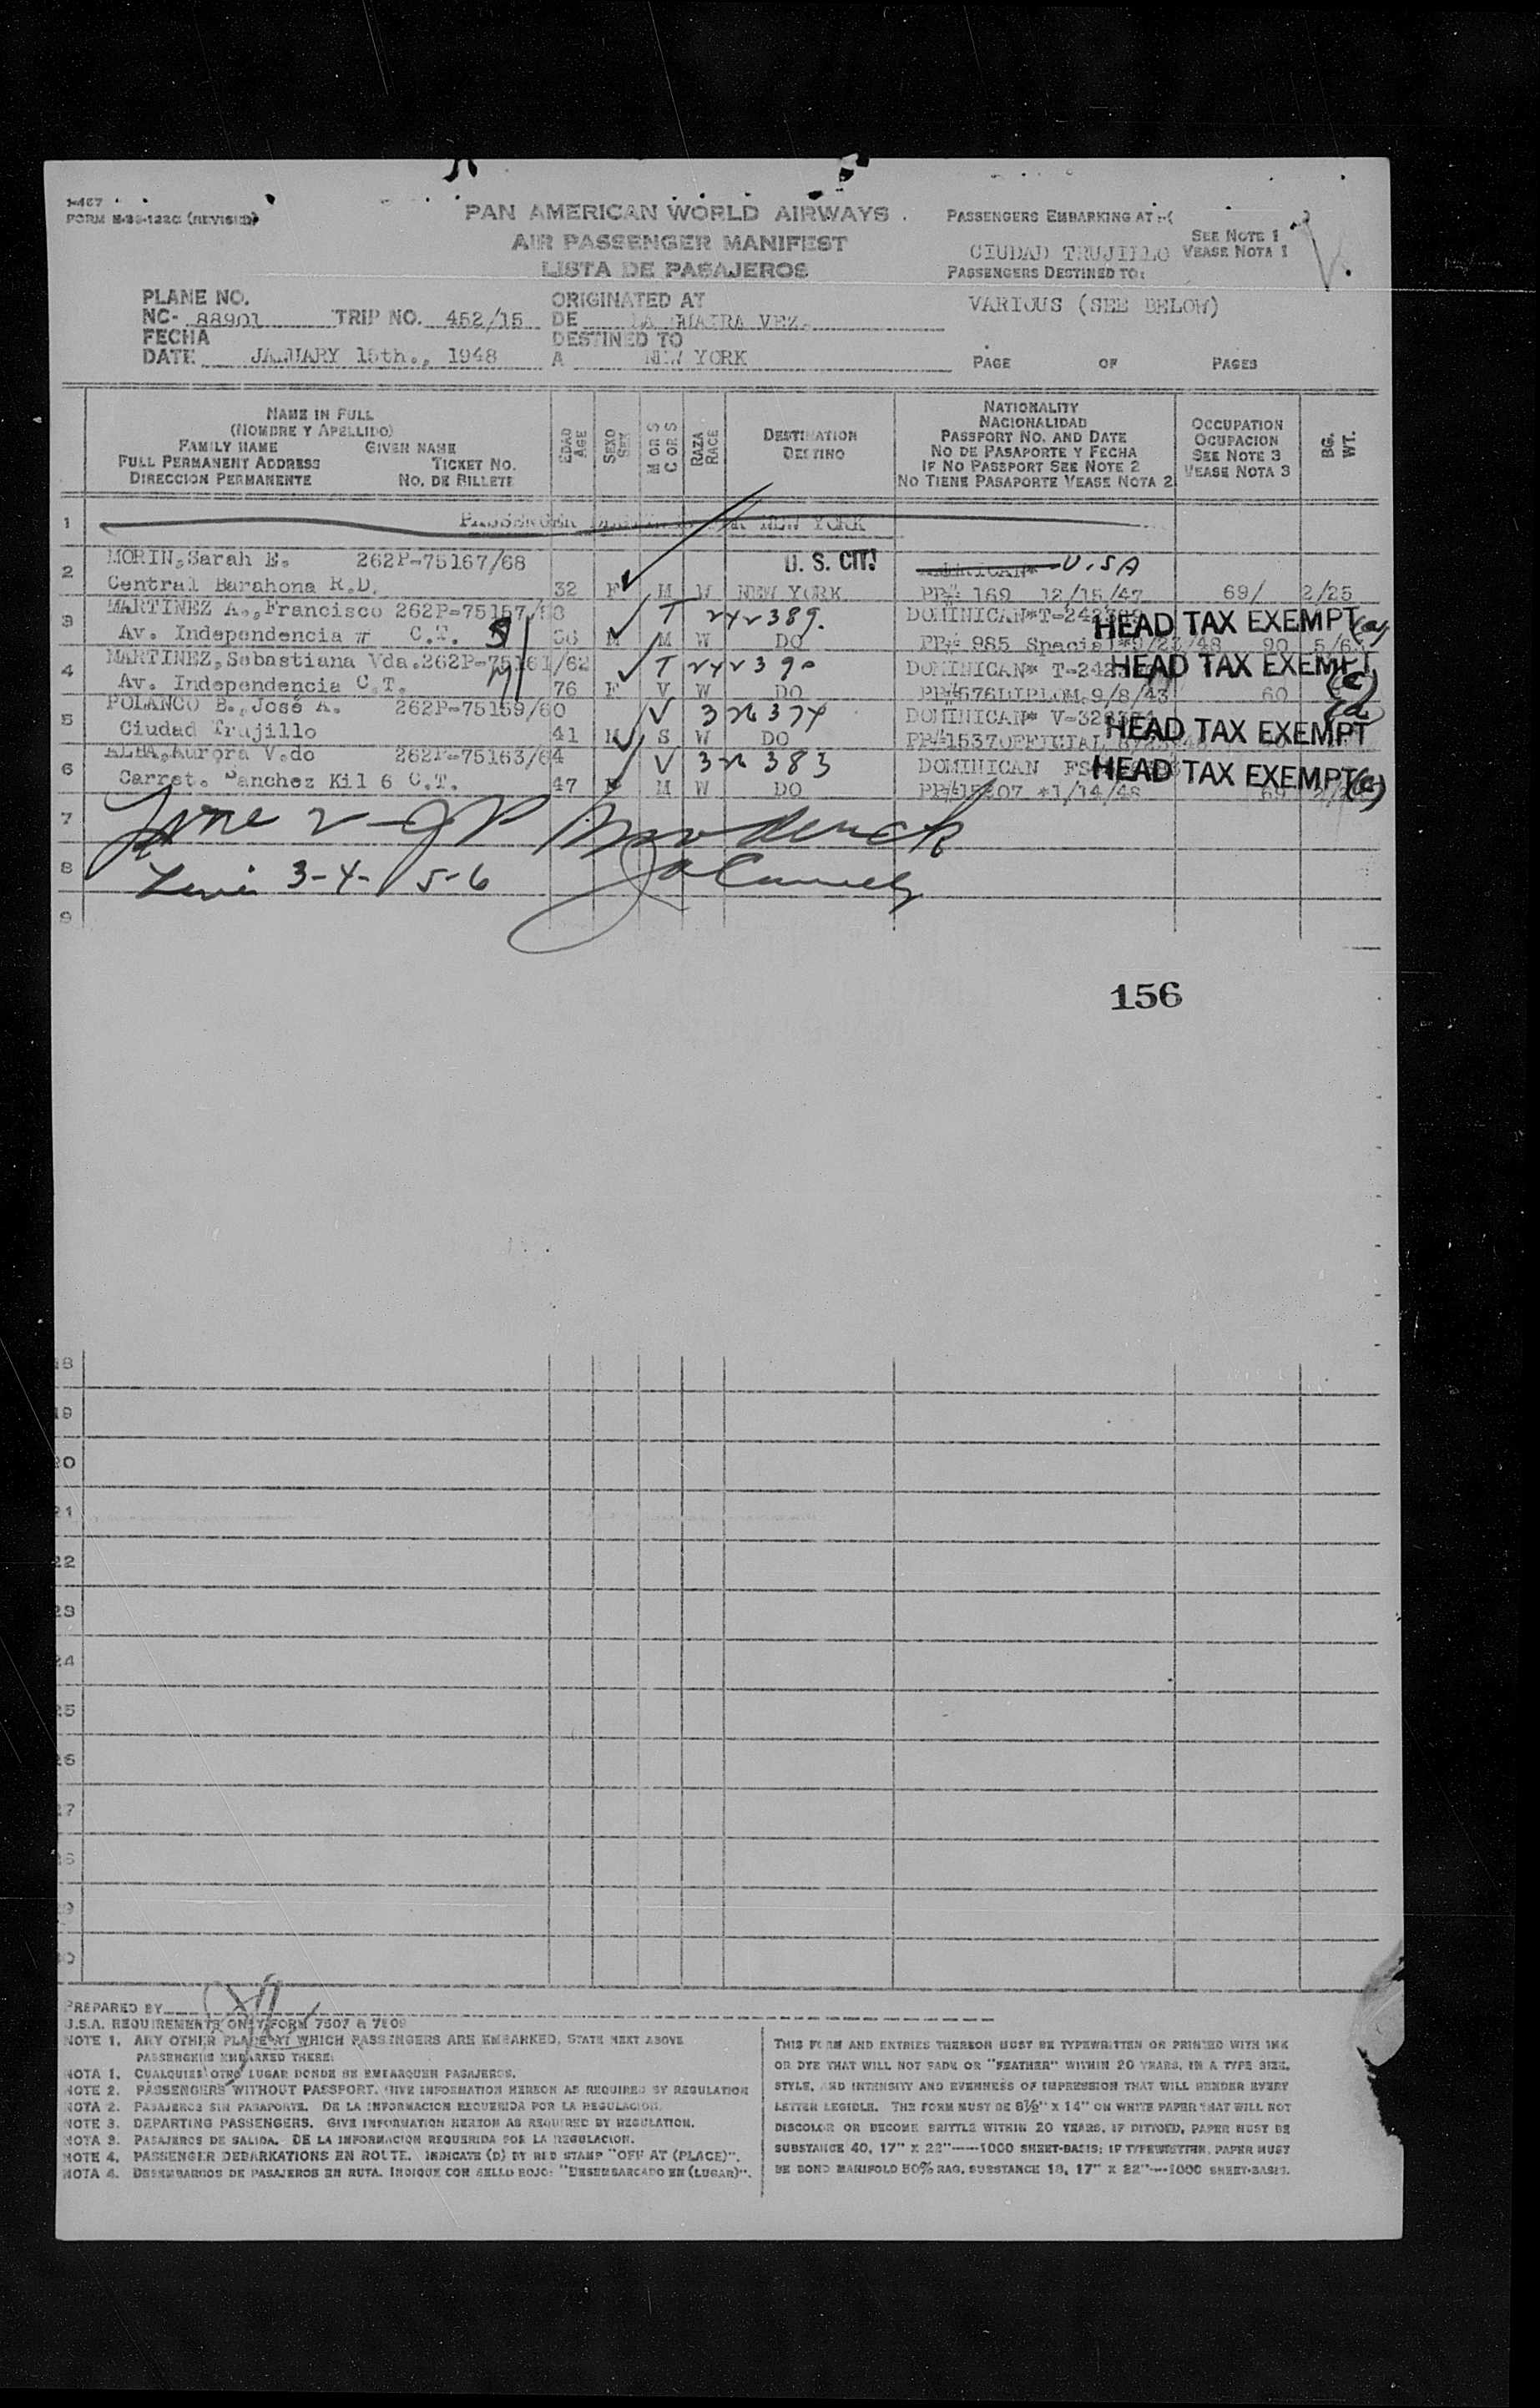 I-467
FORM N-36-122C (REVISED)
PAN AMERICAN WORLD AIRWAYS
AIR PASSENGER MANIFEST
LISTA DE PASAJEROS
PASSENGERS EMBARKING AT:
SEE NOTE 1
CIUDAD TRUJILLO VEASE NOTA 1
PASSENGERS DESTINED TO:
VARIOUS (SEE BELOW)
PLANE NO.
NC- 88901 TRIP NO. 452/15
FECHA
DATE JANUARY 15th., 1948
ORIGINATED AT
DE LA GUAIRA VEZ.
DESTINED TO
A NEW YORK
PAGE OF PAGES
NAME IN FULL
(NOMBRE Y APELLIDO)
FAMILY NAME GIVEN NAME
FULL PERMANENT ADDRESS TICKET NO.
DIRECCION PERMANENTE NO. DE BILLETE
EDAD AGE
SEXO SEX
M OR S C OR S
RAZA RACE
DESTINATION
DESTINO
NATIONALITY
NACIONALIDAD
PASSPORT NO. AND DATE
NO DE PASAPORTE Y FECHA
IF NO PASSPORT SEE NOTE 2
NO TIENE PASAPORTE VEASE NOTA 2
OCCUPATION
OCUPACION
SEE NOTE 3
VEASE NOTA 3
BG. WT.
1 NEW YORK
2 MORIN, Sarah E. 262P-75167/68 U. S. CIT. AMERICAN* U.S.A
Central Barahona R.D. 32 F M W NEW YORK PP# 169 12/15/47 69/ 2/25
3 MARTINEZ A., Francisco 262P-75157/58 T 242389. DOMINICAN*T-242389 HEAD TAX EXEMPT
Av. Independencia C.T. M M W DO PP# 985 Special 90 5/63
4 MARTINEZ, Sebastiana Vda. 262P-75161/62 T 242390 DOMINICAN* HEAD TAX EXEMPT
Av. Independencia C.T. 76 F V W DO PP#576 DIPLOM. 9/8/43 60
5 POLANCO B., José A. 262P-75159/60 V 326374 DOMINICAN* HEAD TAX EXEMPT
Ciudad Trujillo 41 M S W DO PP#1537 OFFICIAL
6 ALBA, Aurora V. do 262P-75163/64 V 326383 DOMINICAN HEAD TAX EXEMPT
Carret. Sanchez Kil 6 C.T. 47 F M W DO *1/14/48 69
7 Line 2 -
8 3-4- 5-6
9
156
18
19
20
21
22
23
24
25
26
27
28
29
30
PREPARED BY
U.S.A. REQUIREMENTS ONLY FORM 7507 & 7509
NOTE 1. ANY OTHER PLACE AT WHICH PASSENGERS ARE EMBARKED, STATE NEXT ABOVE
PASSENGERS EMBARKED THERE.
NOTA 1. CUALQUIER OTRO LUGAR DONDE SE EMBARQUEN PASAJEROS.
NOTE 2. PASSENGERS WITHOUT PASSPORT. GIVE INFORMATION HEREON AS REQUIRED BY REGULATION
NOTA 2. PASAJEROS SIN PASAPORTE. DE LA INFORMACION REQUERIDA POR LA REGULACION.
NOTE 3. DEPARTING PASSENGERS. GIVE INFORMATION HEREON AS REQUIRED BY REGULATION.
NOTA 3. PASAJEROS DE SALIDA. DE LA INFORMACION REQUERIDA POR LA REGULACION.
NOTE 4. PASSENGER DEBARKATIONS EN ROUTE. INDICATE (D) BY RED STAMP "OFF AT (PLACE)".
NOTA 4. DESEMBARCOS DE PASAJEROS EN RUTA. INDIQUE CON SELLO ROJO: "DESEMBARCADO EN (LUGAR)".
THIS FORM AND ENTRIES THEREON MUST BE TYPEWRITTEN OR PRINTED WITH INK
OR DYE THAT WILL NOT FADE OR "FEATHER" WITHIN 20 YEARS, IN A TYPE SIZE,
STYLE, AND INTENSITY AND EVENNESS OF IMPRESSION THAT WILL RENDER EVERY
LETTER LEGIBLE. THE FORM MUST BE 8½" X 14" ON WHITE PAPER THAT WILL NOT
DISCOLOR OR BECOME BRITTLE WITHIN 20 YEARS. IF DITTOED, PAPER MUST BE
SUBSTANCE 40, 17" X 22"----1000 SHEET-BASIS; IF TYPEWRITTEN, PAPER MUST
BE BOND MANIFOLD 50% RAG, SUBSTANCE 18, 17" X 22"---1000 SHEET-BASIS.